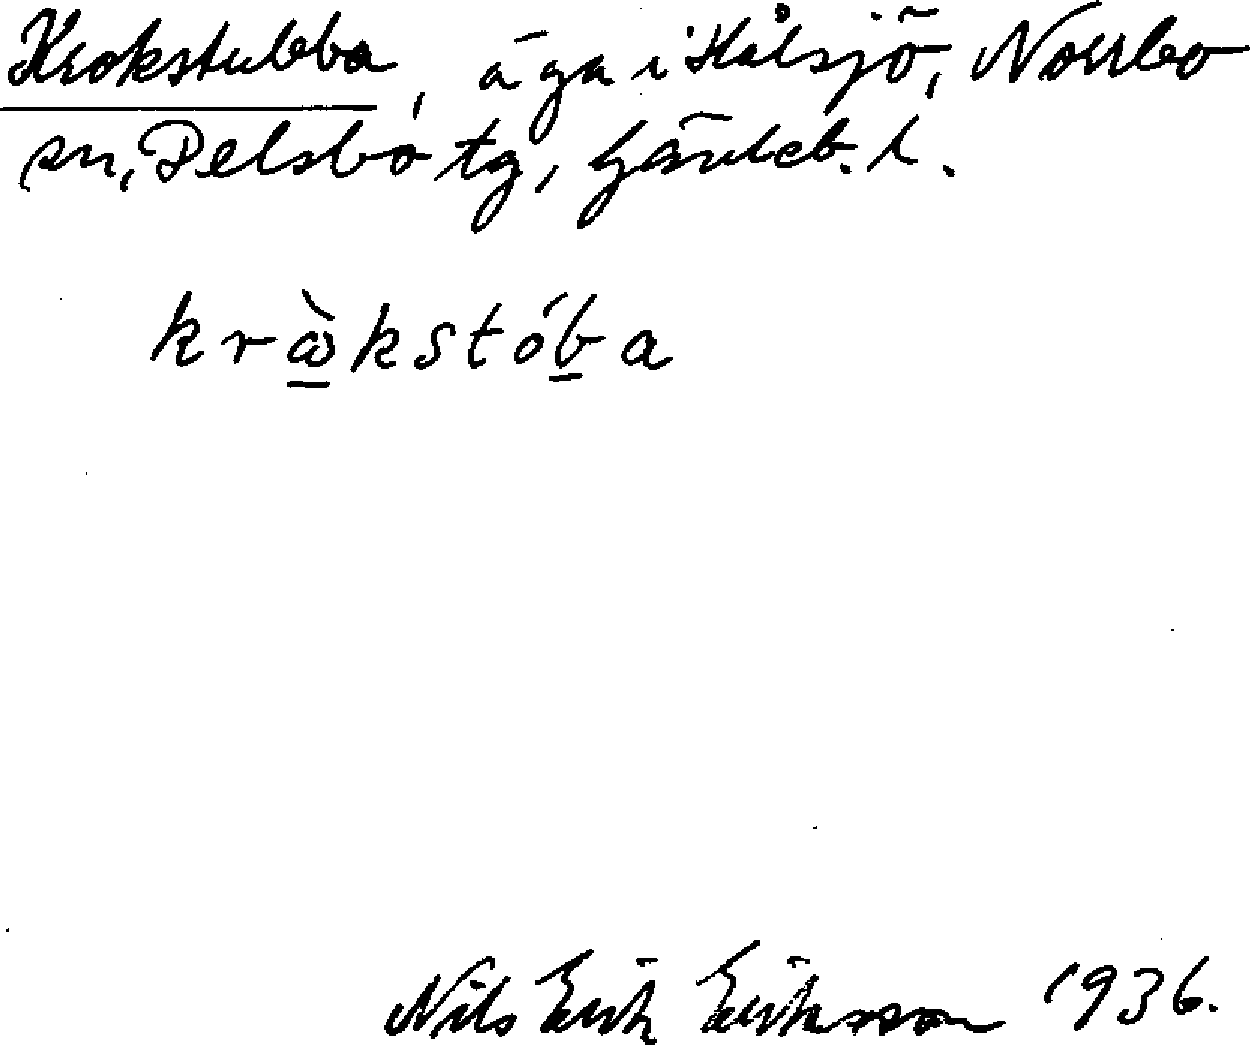 Krokstubba, äga i Kålsjö, Norrbo
sn, Delsbo tg, Gävleb. l.
krὼkstóba
Nils Erik Eriksson 1936.